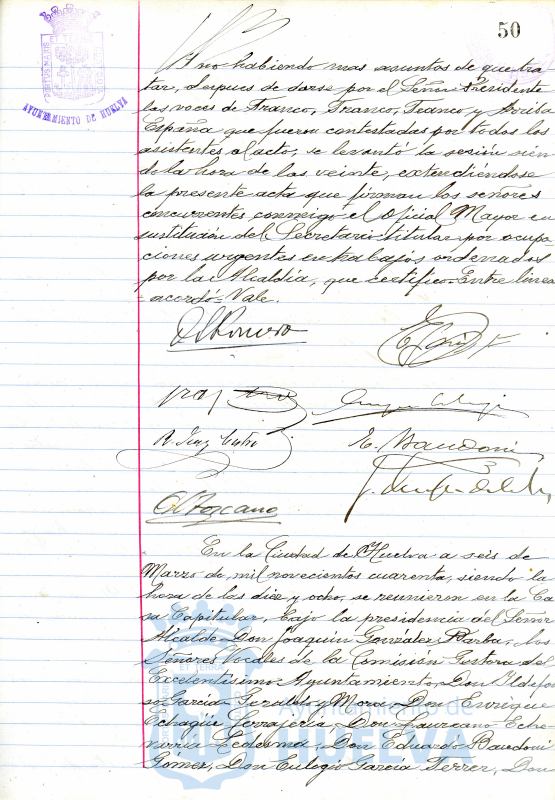 50
AYUNTAMIENTO DE HUELVA
Y no habiendo mas asuntos de que tra-
tar, despues de darse por el Señor Presidente
las voces de Franco, Franco, Franco y Arriba
España que fueron contestadas por todos los
asistentes al acto, se levantó la sesión sien-
do la hora de las veinte, extendiéndose
la presente acta que firman los señores
concurrentes conmigo el Oficial Mayor en
sustitución del Secretario titular por ocupa-
ciones urgentes en trabajos ordenados
por la Alcaldía, que certifico=Entre lineas
=acordó=Vale.
E. Baudoni
En la Ciudad de Huelva a seis de
Marzo de mil novecientos cuarenta, siendo la
hora de las diez y ocho, se reunieron en la Ca-
sa Capitular, bajo la presidencia del Señor
Alcalde Don Joaquín González Barba, los
Señores Vocales de la Comisión Gestora del
Excelentísimo Ayuntamiento, Don Ildefon-
so García y Mora, Don Enrique
Echagüe Don Laureano Eche-
varria Ledesma, Don Eduardo Baudoni
Gómez, Don Eulogio García Ferrer, Don
Ayuntamiento de
HUELVA